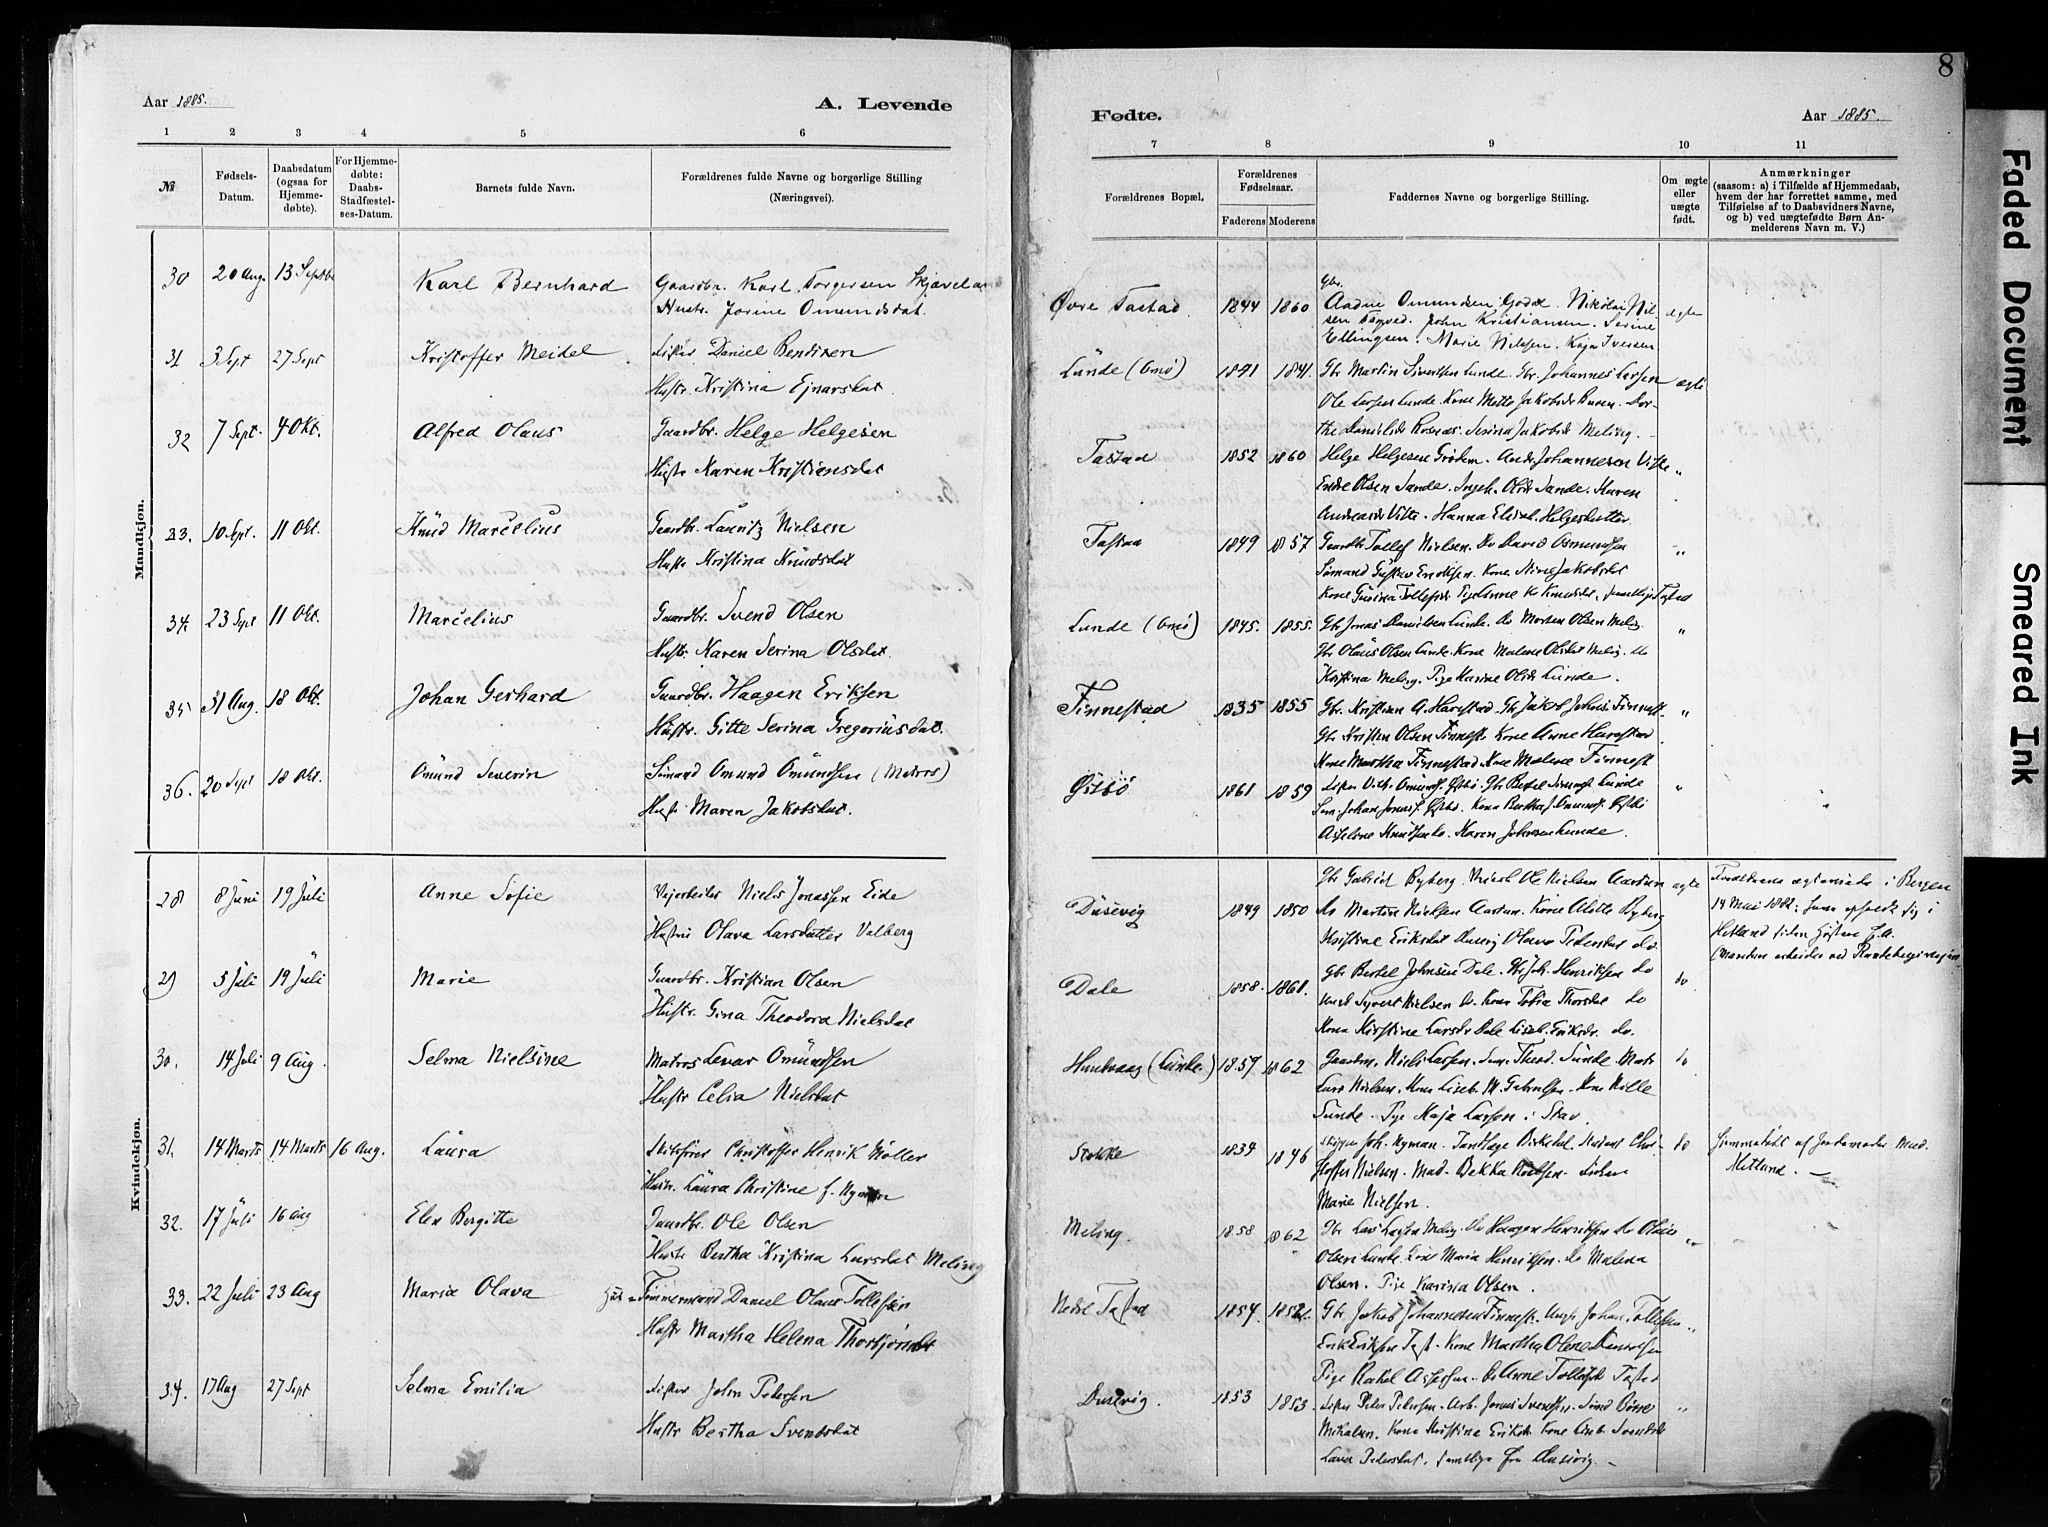 8
Aar 1885.
A. Levende
Fødte.
Aar 1885.
1 2 3 4 5 6
7 8 9 10 11
№
Fødsels-
Datum.
Daabsdatum
(ogsaa for
Hjemme-
døbte).
For Hjemme-
døbte:
Daabs-
Stadfæstel-
ses-Datum.
Barnets fulde Navn.
Forældrenes fulde Navne og borgerlige Stilling
(Næringsvei).
Forældrenes Bopæl.
Forældrenes
Fødselsaar.
Faderens Moderens
Faddernes Navne og borgerlige Stilling.
Om ægte
eller
uægte
født.
Anmærkninger
(saasom: a) i Tilfælde af Hjemmedaab,
hvem der har forrettet samme, med
Tilføielse af to Daabsvidners Navne,
og b) ved uægtefødte Børn An-
melderens Navn m. V.)
Mandkjøn.
30 20 Aug. 13 Septbr Karl Bernhard Gaardbr. Karl Torgersen
Hustr. Jorine Omundsdat.
Øvre Tastad 1844 1860 Gbr.
Aadne Omundsen Nikolai Nil-
sen John Kristiansen. Serine
Ellingsen. Marie Nilsen. Kaja Iversen
ægte
31 3 Sept 27 Sept Kristoffer Meidel Fisker Daniel Bendixen
Hustr. Kristina Ejnarsdat
Lunde (Omø) 1841 1841. Gbr Martin Sivertsen Lunde. Gbr. Johannes Larsen
Ole Lunde. Kone Mette Jakobsdr Dor-
the Danielsdr Serina Jakobsdr Meling.
ægte
32 7 Sept. 4 Okt. Alfred Olaus Gaardbr. Helge Helgesen
Hustr Karen Kristiansdat
Tastad 1852 1860 Helge Helgesen Grødem. Andr. Johannesen Viste
Endre Olsen Sande. Ingeb. Olsdr Sande. Karen
Andreasdr Viste. Hanna Elisab. Helgesdatter
"
33. 10 Sept. 11 Okt. Knud Marcelius Gaardbr. Lauritz Nielsen
Hustr Kristina Knudsdat
Tastad 1849 1857 Gaardbr Tollef Nielsen. Do David Osmundsen
Sømand Gustav Kone Jakobsdat
Kone Tollefsdr. Pige
"
34. 23 Sept 11 Okt. Marcelius Gaardbr. Svend Olsen
Hustr. Karen Serina Olsdat.
Lunde (Omø) 1845. 1855. Gbr Jonas Danielsen Lunde. Do Morten Olsen Meling
Gbr Olaus Olsen Lunde. Kone Malene Olsdat Meling. Do
Kristina Meling. Pige Karine Olsdr Lunde.
"
35 31 Aug. 18 Okt. Johan Gerhard Gaardbr. Haagen Eriksen
Hustr. Gitte Serina Gregoriusdat.
Finnestad 1835 1855 Gbr. Kristian A. Harestad. Gbr Jakob Johans. Finnest.
Gbr Kristen Olsen Finnest. Kone Anne Harestad.
Kone Martha Finnestad. Kone Malene Finnest
"
36. 20 Sept 18 Okt. Omund Severin Sømand Omund Omundsen (Matros)
Hustr Maren Jakobsdat.
Østbø 1861 1859 Fisker Vilh. Omunds. Østbø. Gbr Bertel Lunde
Søm. Johan Jonas. Østbø. Kone Bertha J. Omunds. Østbø
Karen Johnsen Lunde.
"
Kvindekjøn.
28 8 Juni 19 Juli Anne Sofie Vejarbeider Niels Jonassen Eide
Hustru Olava Larsdatter Valberg
Dusevig 1849 1850 Gbr Gabriel Byberg. Ole Nielsen Aarstun
Do Martin Nielsen Aarstun. Kone Alette Byberg
Kristine Eriksdat Dusevig Olava Pedersdat do
ægte
Forældrene ægteviede i Bergen
14 Mai 1882: have opholdt sig i
Hetland siden Høsten
(Manden arbeider ved
29 5 Juli 19 Juli Marie Gaardbr. Kristian Olsen
Hustr. Gina Theodora Nielsdat
Dale 1858. 1861. Gbr Bertel Johnsen Dale. Gbr Joh. Henriksen do
Syvert Nielsen do. Kone Tobia Thorsdat do
Kone Kirstine Larsdr Dale Eriksdr. do.
do
30. 14 Juli 9 Aug. Selma Nielsine Matros Levar Omundsen
Hustr Celia Nielsdat
Hundvaag (Lunde.) 1857 1862 Gaardm. Niels Larsen. Søm. Theod. Sunde Matr.
Lars Nielsen. Kone Liseb. M. Gabrielsen. Kone
Sunde. Pige Kaja Larsen i Stav.
do
31. 14 Marts 14 Marts 16 Aug. Laura Skibsfører Christoffer Henrik Møller
Hustr. Laura Christine f. Nyman
Stokke 1834 1846 Skipper Joh. Nyman. Tandlæge Birkedal. Student Chri-
stoffer Nielsen. Mad. Bekka Nielsen. Frøken
Marie Nielsen.
do
Hjemmedøbt af Jordemoder Mad.
Hetland.
32. 17 Juli 16 Aug Elen Bergitte Gaardbr. Ole Olsen
Hustr Bertha Kristina Larsdat Meling
Meling. 1858 1862 Gbr. Lars Larsen Meling. Do Haagen Henriksen do Olaus
Olsen Lunde. Kone Maria Henriksen. Do Malena
Olsen. Pige Karina Olsen.
"
33. 22 Juli 23 Aug Maria Olava Hus- Tømmermand Daniel Olaus Tollefsen
Hustr Martha Helena Thorbjørnsdr
Nedre Tastad 1854. 1852. Gbr. Jakob Johannesen Finnest. Ungk. Johan Tollefsen
Erik Eriksen Tast. Kone Martha Olene
Pige Rakel Do Anne Tollefsdr Tastad
"
34. 17 Aug 27 Sept Selma Emilia Fisker John Pedersen
Hustr Bertha Svendsdat
Dusevig. 1853 1853 Fisker Peder Pedersen. Arb. Jonas Svendsen. Sømd Børre
Mikalsen. Kone Kristine Eriksdr Kone Svendsdr
Lava Pedersdat. samtlige fra Dusevig.
"
Faded Document
Smeared Ink